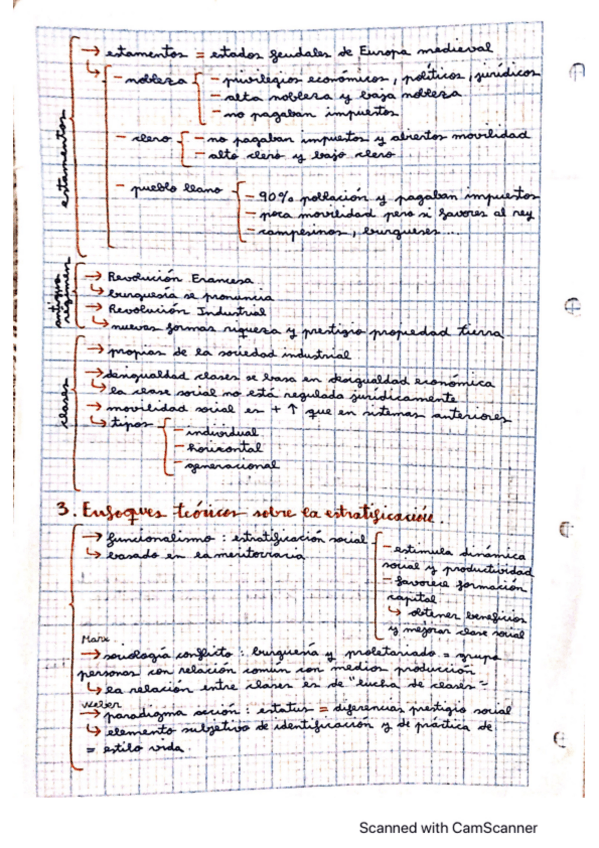 → estamentos = estados feudales de Europa medieval
↳ - nobleza - privilegios económicos, políticos, jurídicos
- alta nobleza y baja nobleza
- no pagaban impuestos
- clero - no pagaban impuestos y abiertos movilidad
- alto clero y bajo clero
estamentos
- pueblo llano - 90% población y pagaban impuestos
- poca movilidad pero si favores al rey
- campesinos, burgueses...
antiguo régimen
→ Revolución Francesa
↳ burguesía se pronuncia
→ Revolución Industrial
↳ nuevas formas riqueza y prestigio propiedad tierra
clases
→ propias de la sociedad industrial
→ desigualdad clases se basa en desigualdad económica
↳ la clase social no está regulada jurídicamente
→ movilidad social es + ↑ que en sistemas anteriores
↳ tipos - individual
- horizontal
- generacional
3. Enfoques teóricos sobre la estratificación.
→ funcionalismo : estratificación social - estimula dinámica
↳ basado en la meritocracia
social y productividad
- favorece formación
capital
↳ obtener beneficios
y mejorar clase social
Marx
→ sociología conflicto : burguesía y proletariado = grupo
personas con relación común con medios producción
↳ la relación entre clases es de "lucha de clases"
Weber
→ paradigma acción : estatus = diferencias prestigio social
↳ elemento subjetivo de identificación y de práctica de
= estilo vida
Scanned with CamScanner